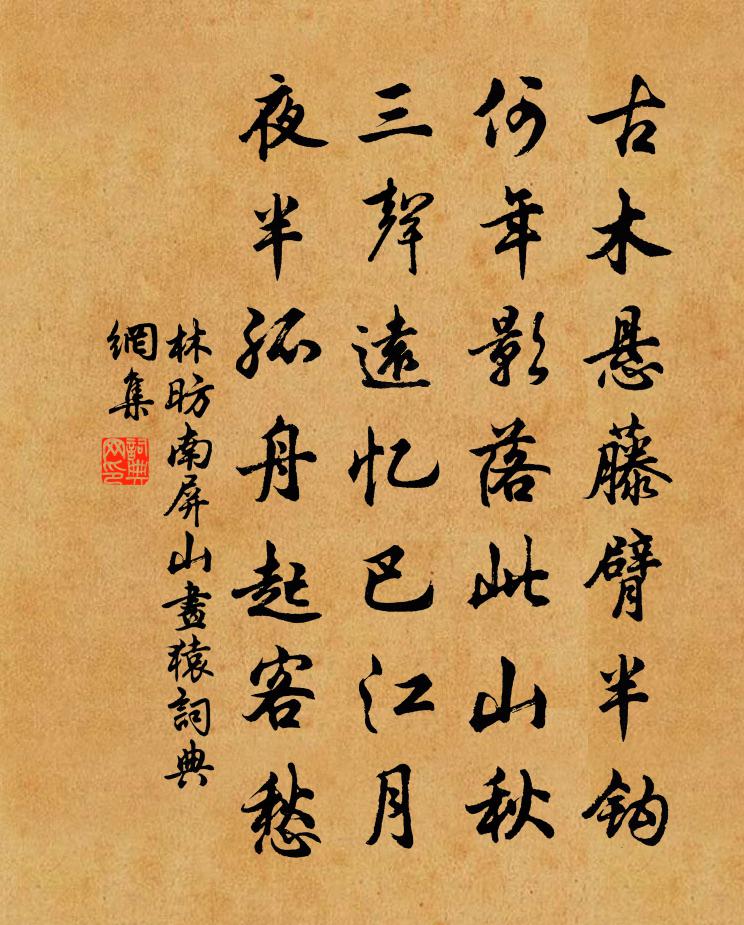 古木悬藤臂半钩
何年影落此山秋
三聲遠忆巴江月
夜半孤舟起客愁
林昉南屏山畫猿詞典
網集
詞典
网印